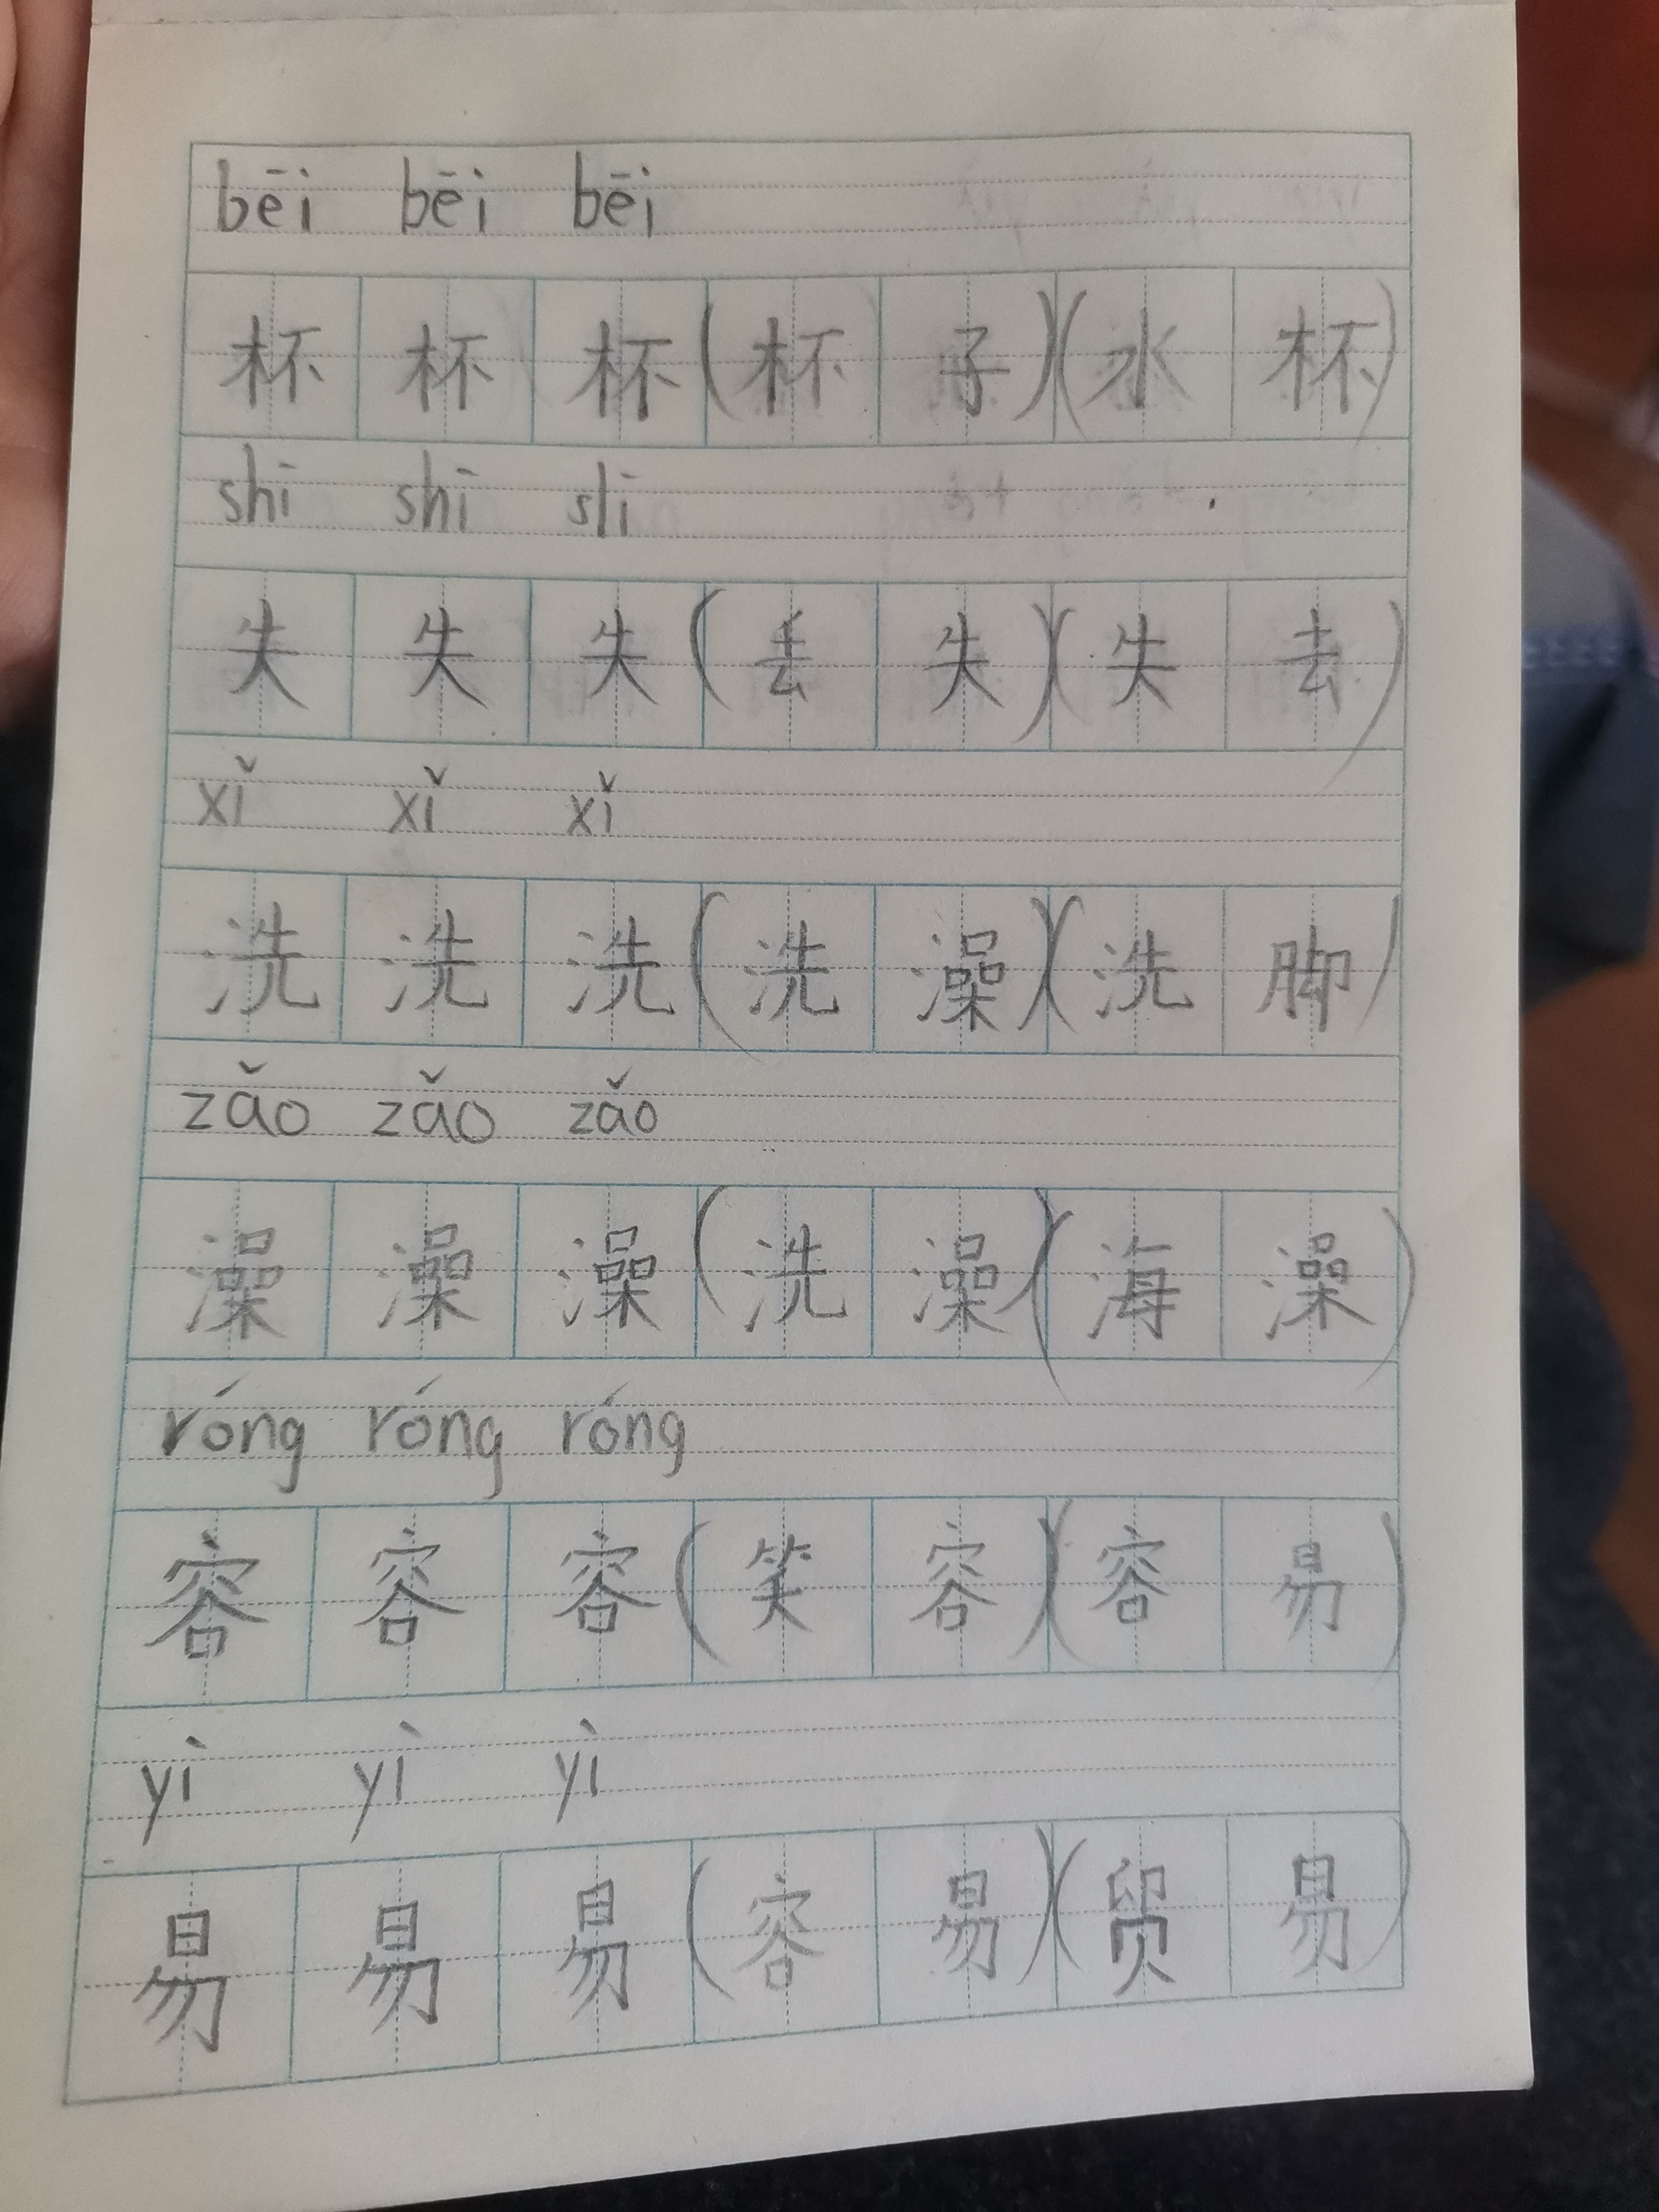 bēi bēi bēi
杯 杯 杯 (杯 子) (水 杯)
shī shī slī
失 失 失 (丢 失) (失 去)
xǐ xǐ xǐ
洗 洗 洗 (洗 澡) (洗 脚)
zǎo zǎo zǎo
澡 澡 澡 (洗 澡) (海 澡)
róng róng róng
容 容 容 (笑 容) (容 易)
yì yì yì
易 易 易 (容 易) (贸 易)